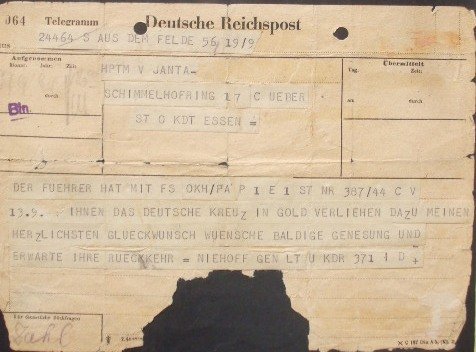 064 Telegramm Deutsche Reichspost
24464 S AUS DEM FELDE 56 19/9
Aufgenommen
Jahr Zeit
durch
Übermittelt
Tag: Zeit:
an: durch:
HPTM V JANTA-
SCHIMMELHOFRING 17 C UEBER
ST O KDT ESSEN =
Bln.
DER FUEHRER HAT MIT FS OKH/PA P 1 E 1 ST NR 387/44 C V
13.9. IHNEN DAS DEUTSCHE KREUZ IN GOLD VERLIEHEN DAZU MEINEN
HERZLICHSTEN GLUECKWUNSCH WUENSCHE BALDIGE GENESUNG UND
ERWARTE IHRE RUECKKEHR = NIEHOFF GEN LT U KDR 371 I D +
Für dienstliche Rückfragen